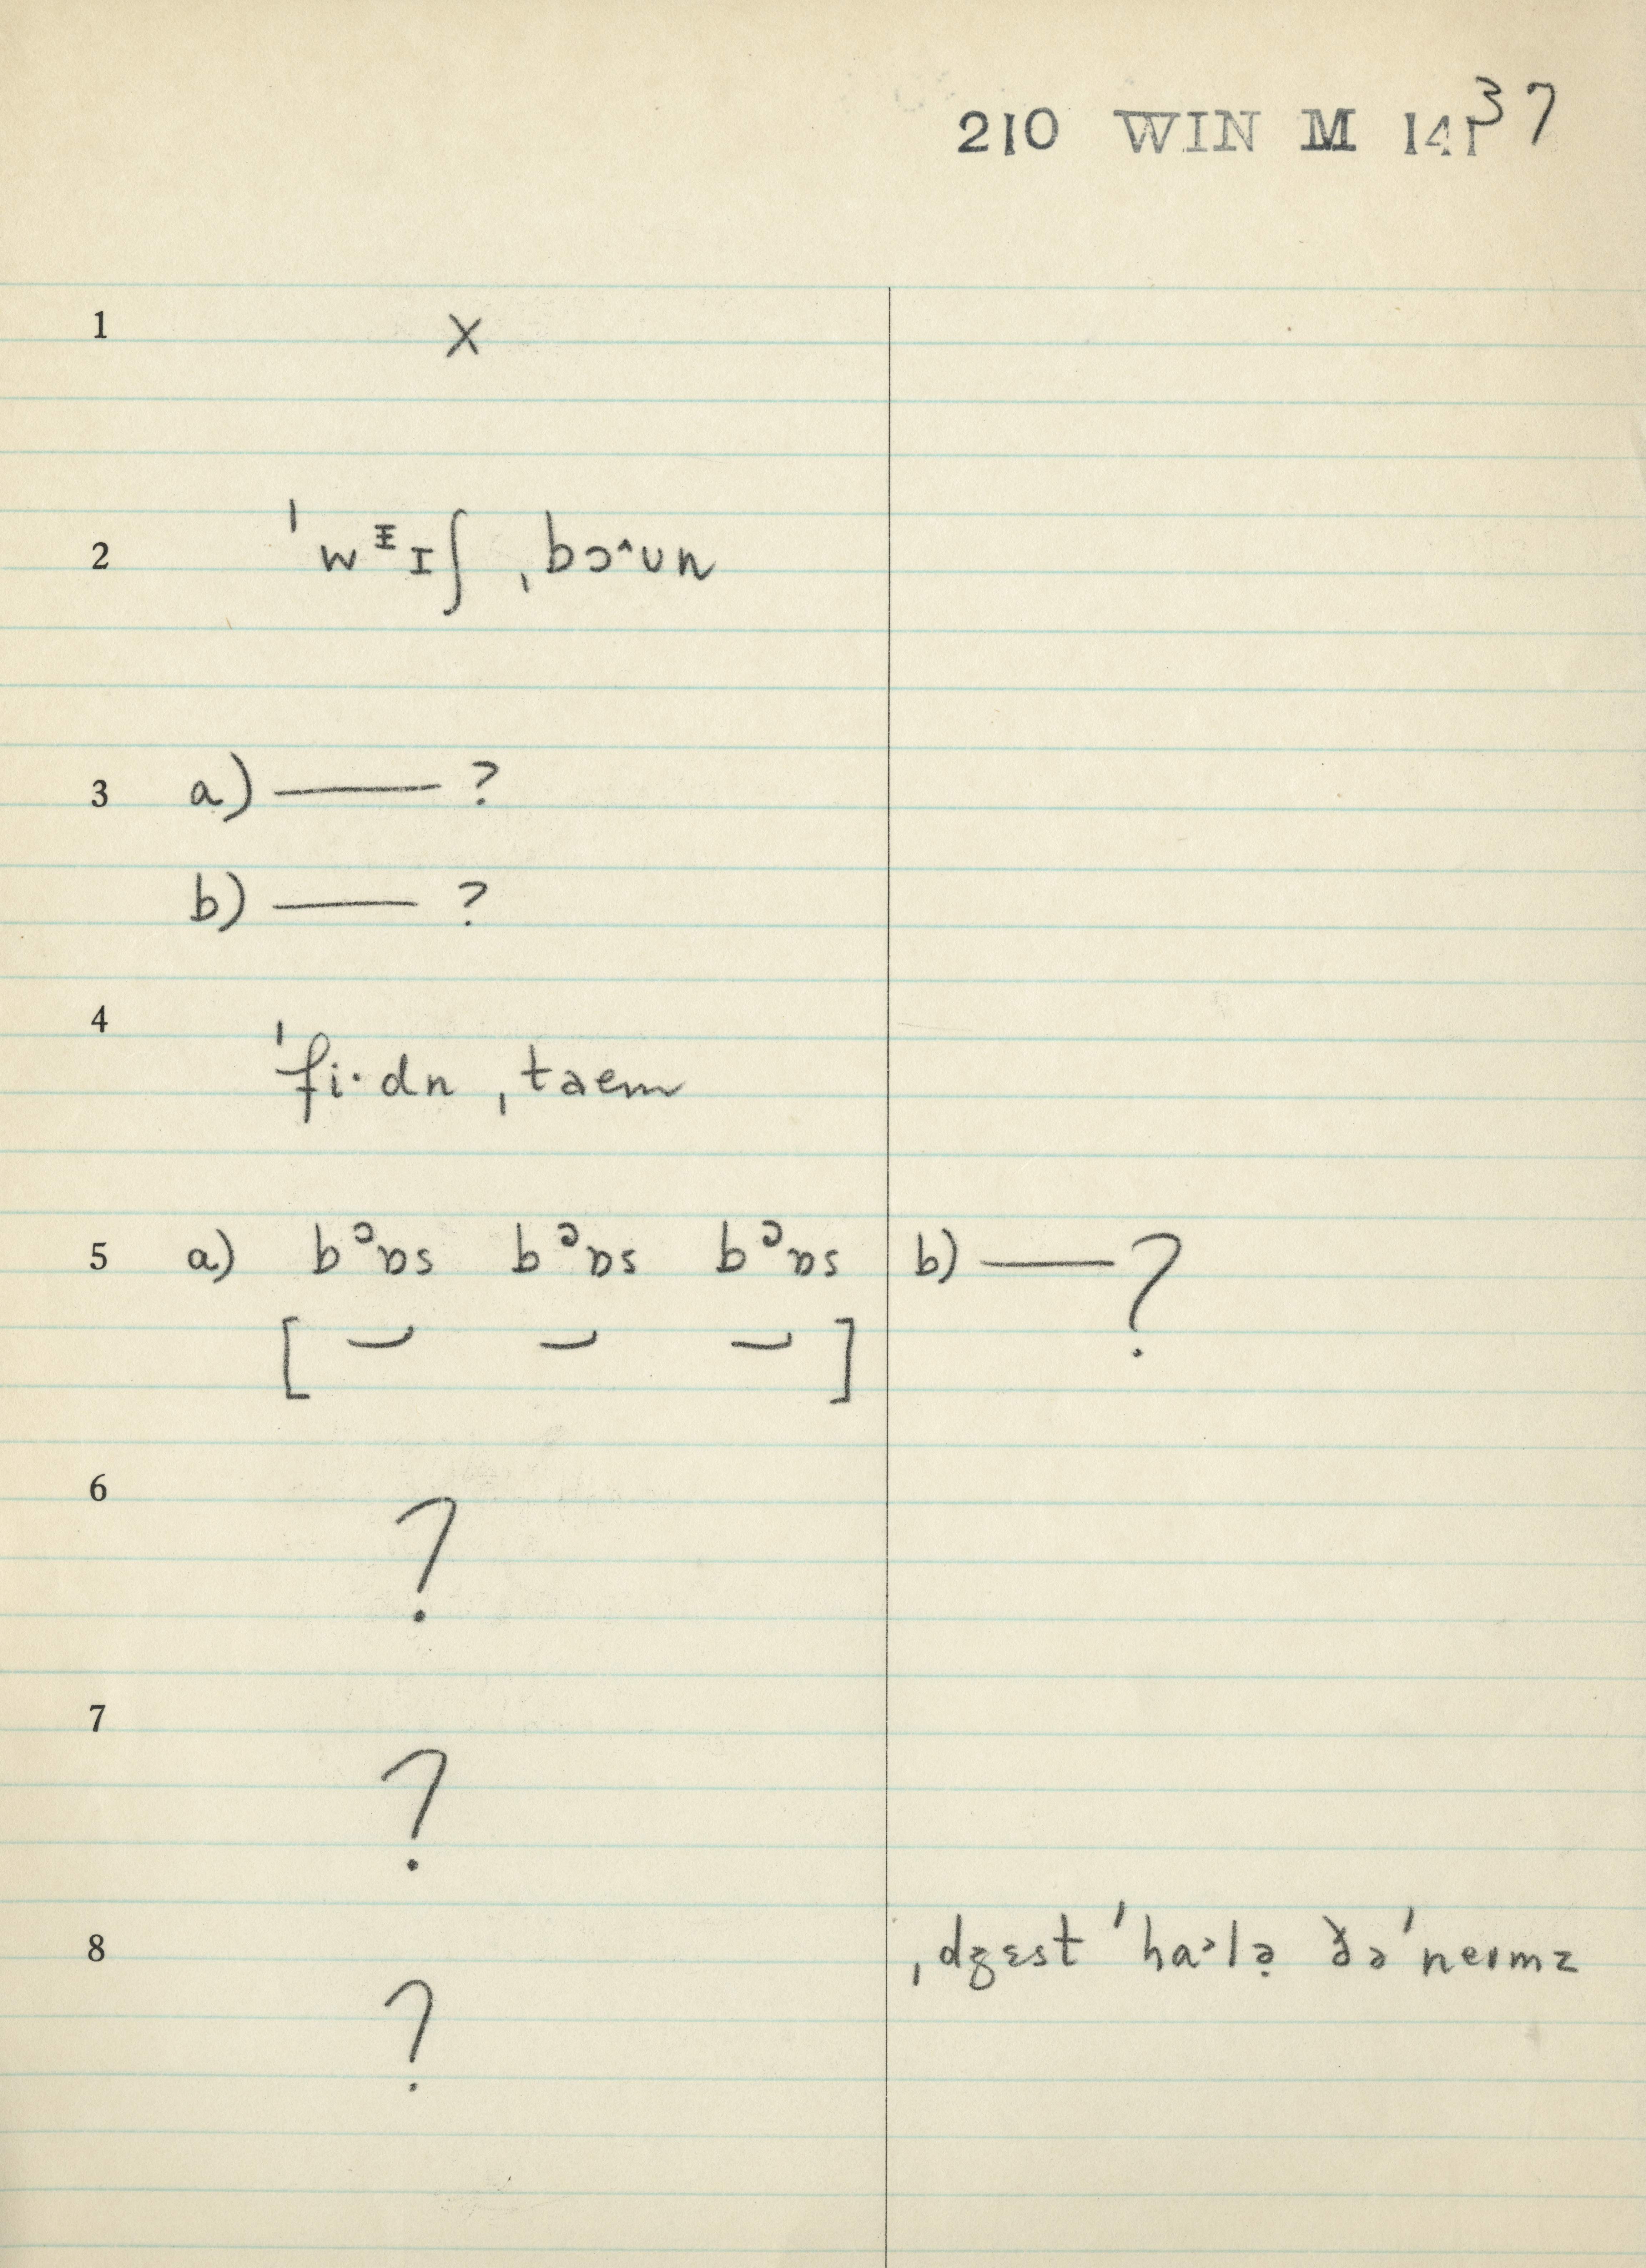 210 WIN M 141 37
1 x
2 ˈwᵻɪʃ ˌbɔ^ʊn
3 a) — ?
b) — ?
4 ˈfi·dn ˌtaem
5 a) bᵓɒs bᵓɒs bᵓɒs b) — ?
[ ]
6 ?
7 ?
8 ?
ˌdʒɛst ˈhaˑlə ðəˈneɪmz